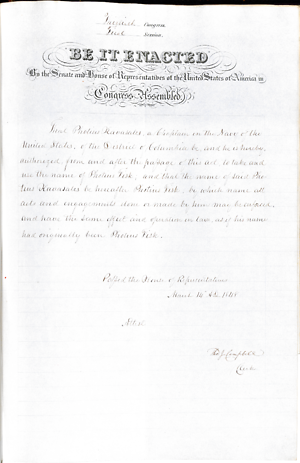 Twentieth Congress
First Session
BE IT ENACTED
By the Senate and House of Representatives of the United States of America in
Congress Assembled,
That Photius Kavasales, a Chaplain in the Navy of the
United States, of the District of Columbia be, and he is hereby,
authorized, from and after the passage of this act to take and
use the name of Photius Fisk, and that the name of said Pho-
tius Kavasales be hereafter Photius Fisk, by which name all
acts and engagements done or made by him may be enforced,
and have the same effect and operation in law, as if his name
had originally been Photius Fisk.
Passed the House of Representatives
March 1848
Attest
Campbell
Clerk